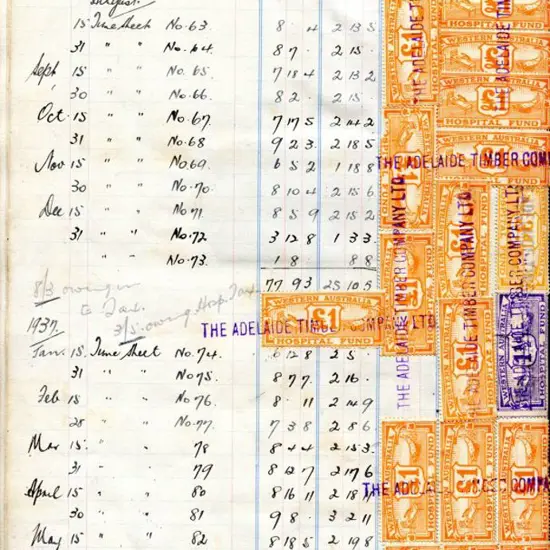 August.
15 Time Sheet No. 63. 8 . 4 2 13 5
31 " " No. 64. 8 7 . 2 15 .
Sept, 15 " " No. 65 7 18 4 2 13 2
30 " " No. 66. 8 2 . 2 15
Oct. 15 " " No. 67. 7 17 5 2 14 2
31 " " No. 68 9 2 3 2 18 5
Nov 15 " " No 69. 6 5 2 1 18 8
30 " " No. 70. 8 10 4 2 15 6
Dec 15 " " No 71. 8 5 9 2 15 2
31 " " No. 72 3 12 8 1 3 3
" " No. 73. 1 8 8 8
77 9 3 25 10 5
8/3 owing in
to Tax.
3/5 owing Hosp. Tax.
1937.
Jan. 15. Time Sheet No. 74. 6 12 8 2 5
31 " " No 75. 8 7 7 2 16 .
Feb 15 " " No 76. 8 . 11 2 14 9
28 " " No. 77. 7 3 8 2 8 6
Mar 15 " " 78 8 4 4 2 15 3
31 " " 79 8 12 7 2 17 6
April 15 " " 80 8 16 11 2 18
30 " " 81 9 8 . 3 2 11
May 15 " " 82 8 18 5 2 19 8
WESTERN AUSTRALIA
£1
HOSPITAL FUND
THE ADELAIDE TIMBER COMPANY LTD